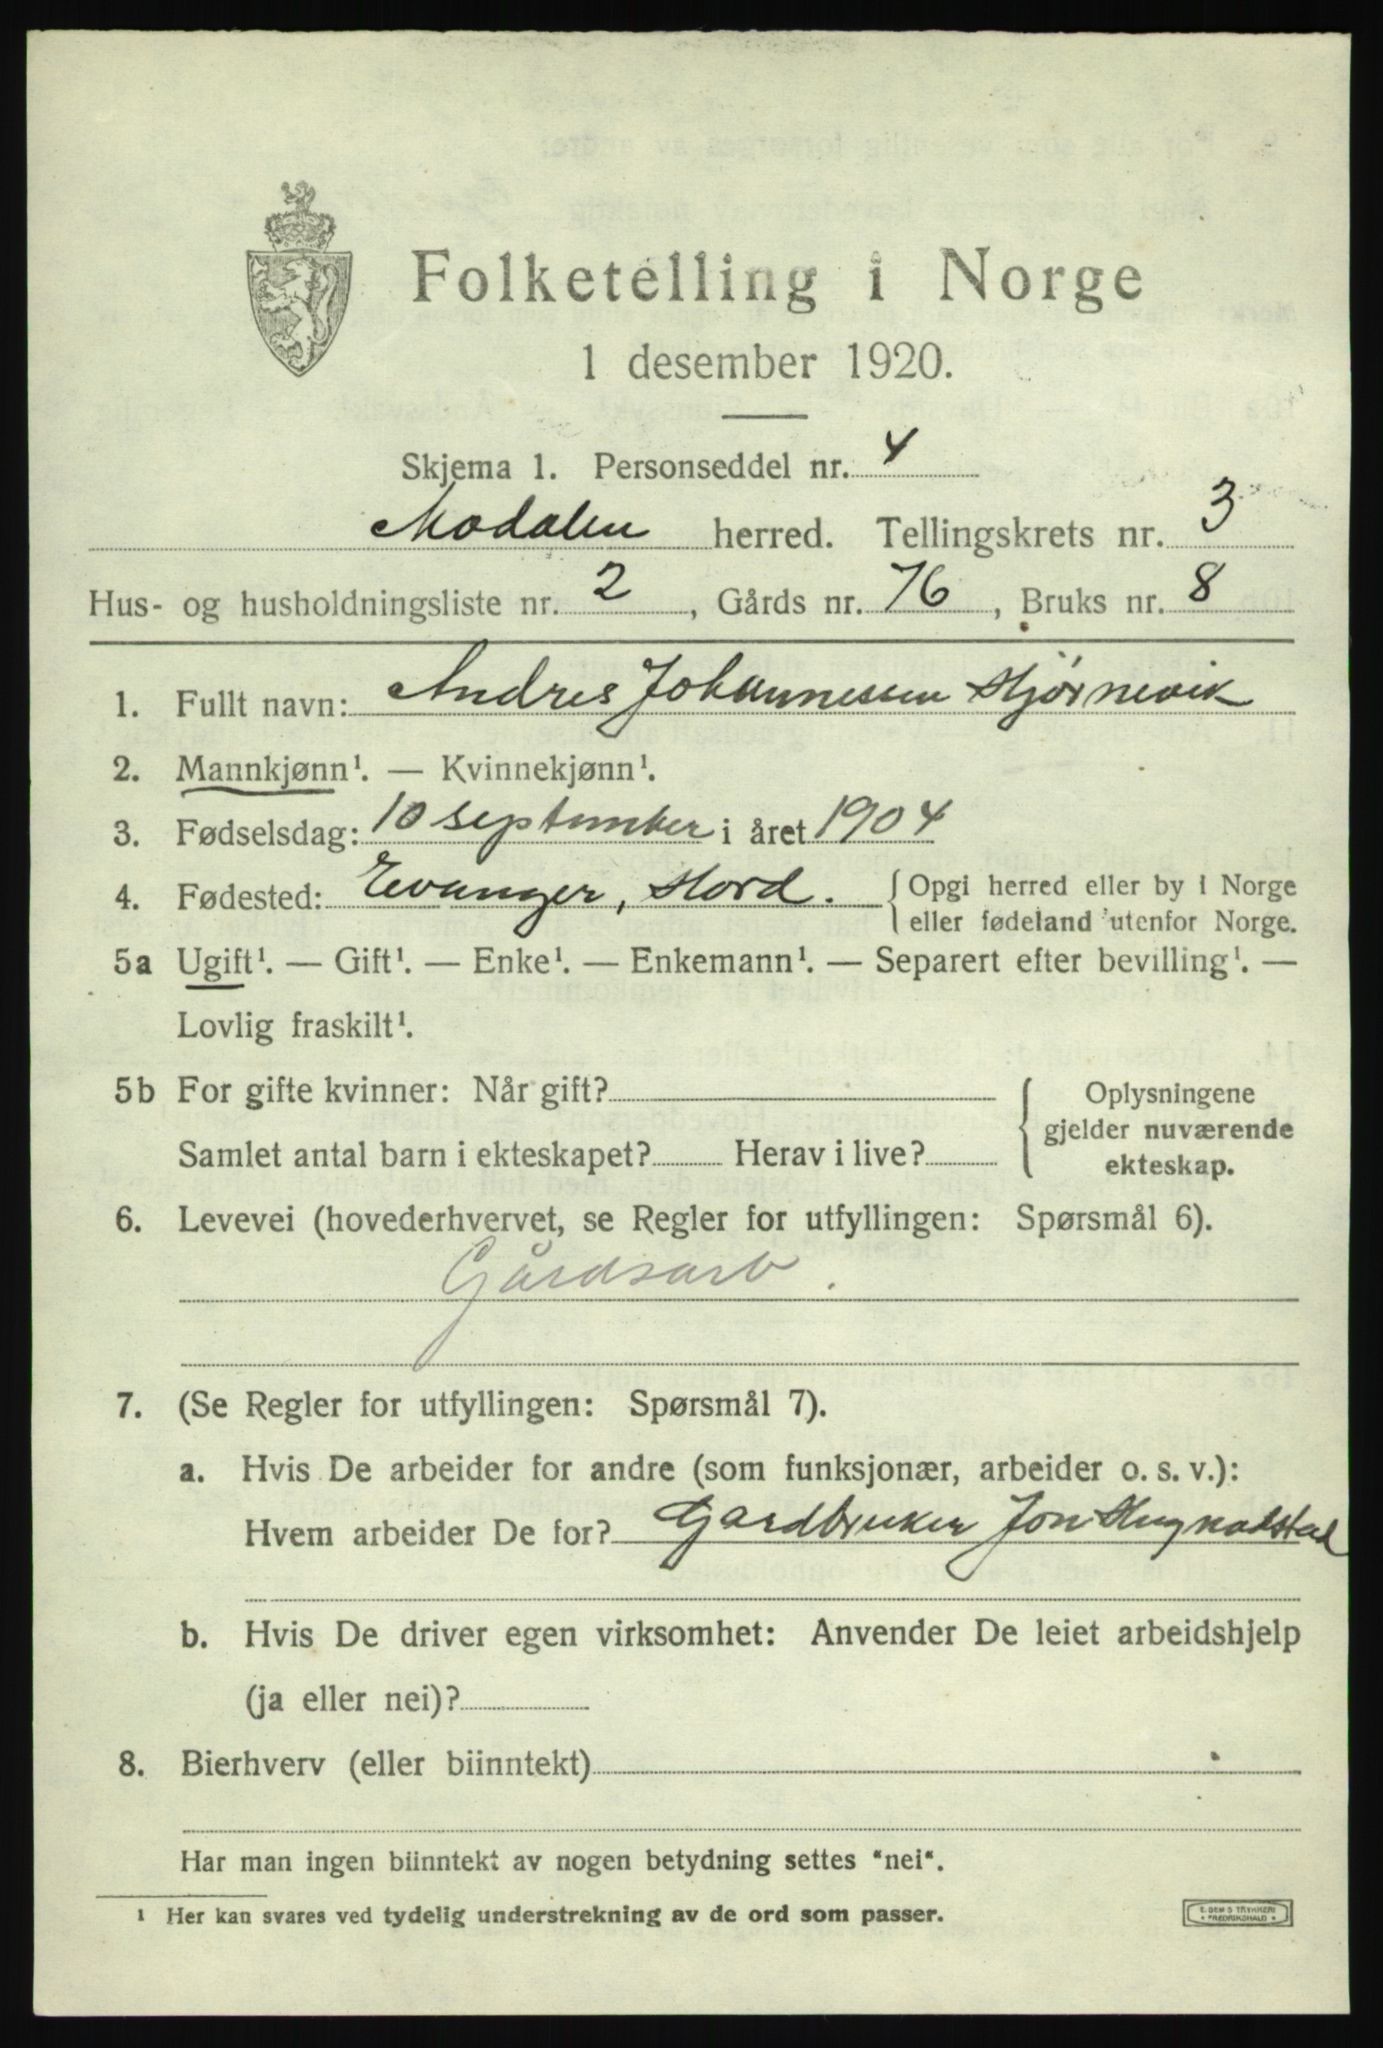 Folketelling i Norge
1 desember 1920.
Skjema 1. Personseddel nr. 4
Modalen herred. Tellingskrets nr. 3
Hus- og husholdningsliste nr. 2, Gårds nr. 76, Bruks nr. 8
1. Fullt navn: Andres Johannessen Hjørnevik
2. Mannkjønn¹. — Kvinnekjønn¹.
3. Fødselsdag: 10 september i året 1904
4. Fødested: Evanger, Hord. { Opgi herred eller by i Norge
eller fødeland utenfor Norge.
5a Ugift¹. — Gift¹. — Enke¹. — Enkemann¹. — Separert efter bevilling¹. —
Lovlig fraskilt¹.
5b For gifte kvinner: Når gift?
Samlet antal barn i ekteskapet? Herav i live?
{ Oplysningene
gjelder nuværende
ekteskap.
6. Levevei (hovederhvervet, se Regler for utfyllingen: Spørsmål 6).
Gårdsarb.
7. (Se Regler for utfyllingen: Spørsmål 7).
a. Hvis De arbeider for andre (som funksjonær, arbeider o. s. v.):
Hvem arbeider De for? Gardbruker Jon Hugnadstad
b. Hvis De driver egen virksomhet: Anvender De leiet arbeidshjelp
(ja eller nei)?
8. Bierhverv (eller biinntekt)
Har man ingen biinntekt av nogen betydning settes "nei".
¹ Her kan svares ved tydelig understrekning av de ord som passer.
E. SEM'S TRYKKERI
FREDRIKSHALD